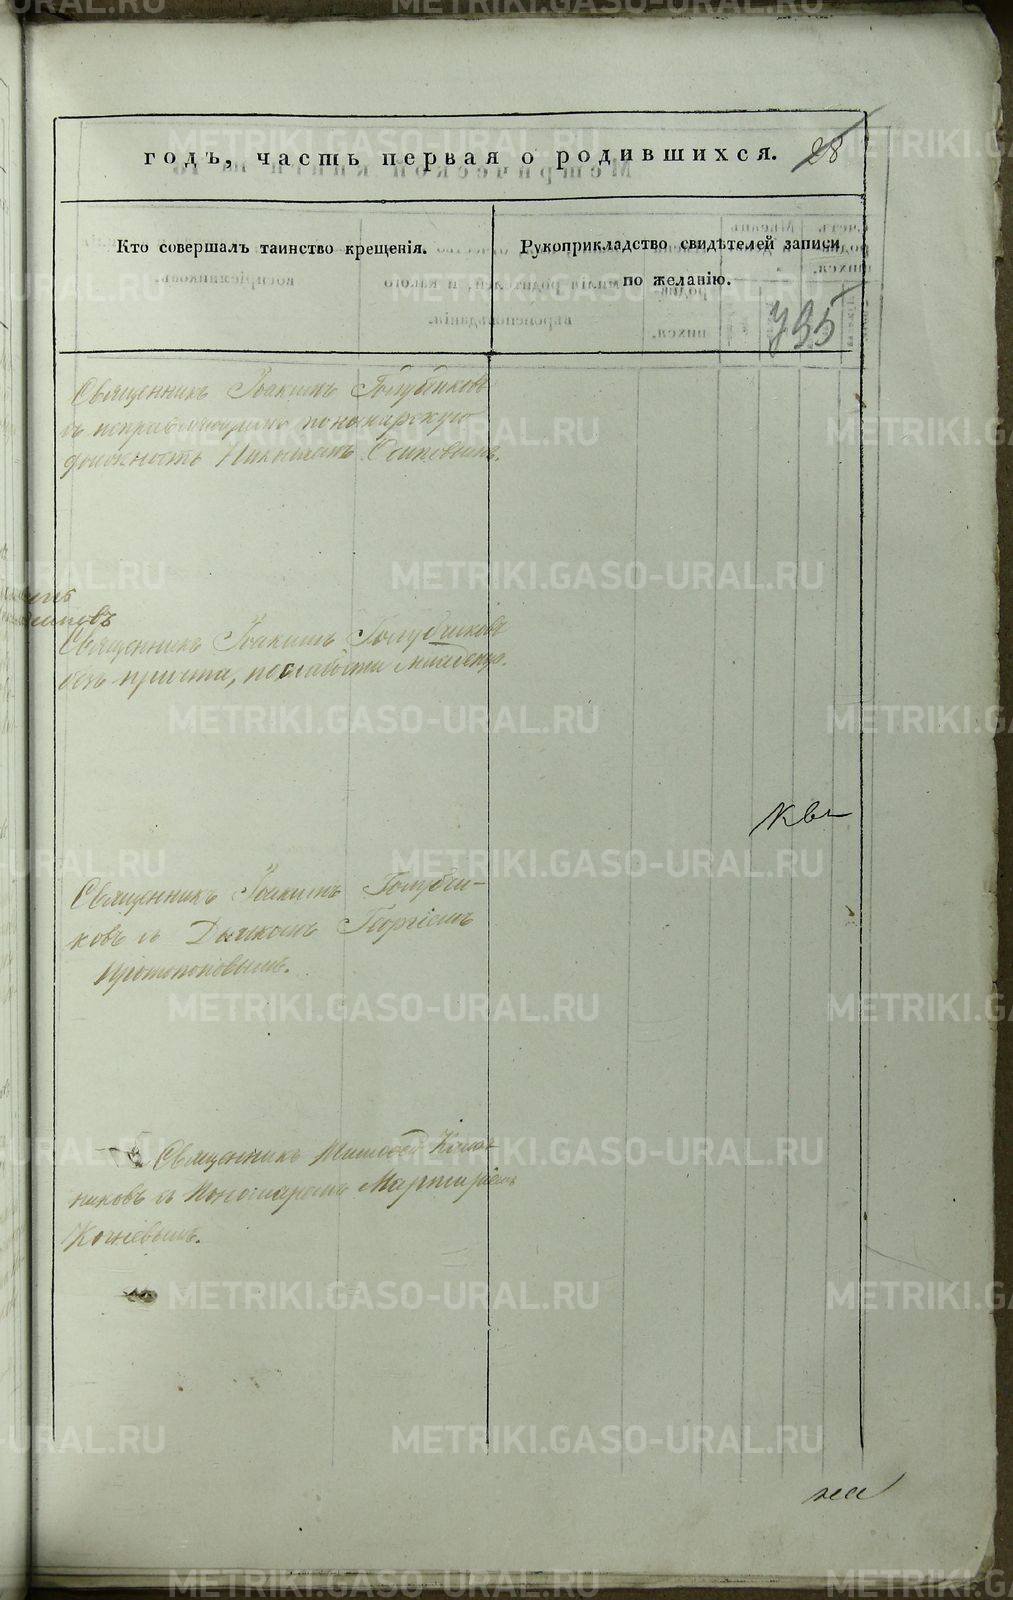 годъ, часть первая о родившихся.
28
Кто совершалъ таинство крещенія.
Рукоприкладство свидѣтелей записи
по желанію.
795
Священникъ Іоакимъ Голубчиковъ
съ исправляющимъ пономарскую
должность Осиповымъ.
Священникъ Іоакимъ Голубчиковъ
безъ причта, по слабости младенца.
Священникъ Іоакимъ Голубчи-
ковъ съ Дьячкомъ Георгіемъ
Протопоповымъ.
Священникъ
никовъ съ Пономаремъ Мартиріемъ
Кочневымъ.
METRIKI.GASO-URAL.RU